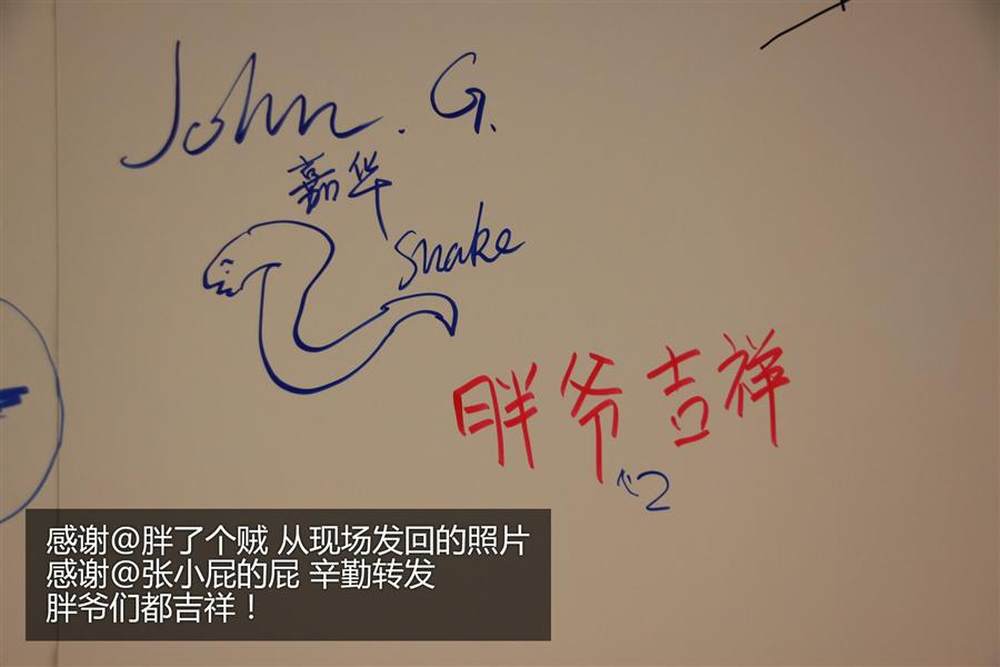 John. G.
嘉华
snake
胖爷吉祥
2
感谢@胖了个贼 从现场发回的照片
感谢@张小屁的屁 辛勤转发
胖爷们都吉祥！